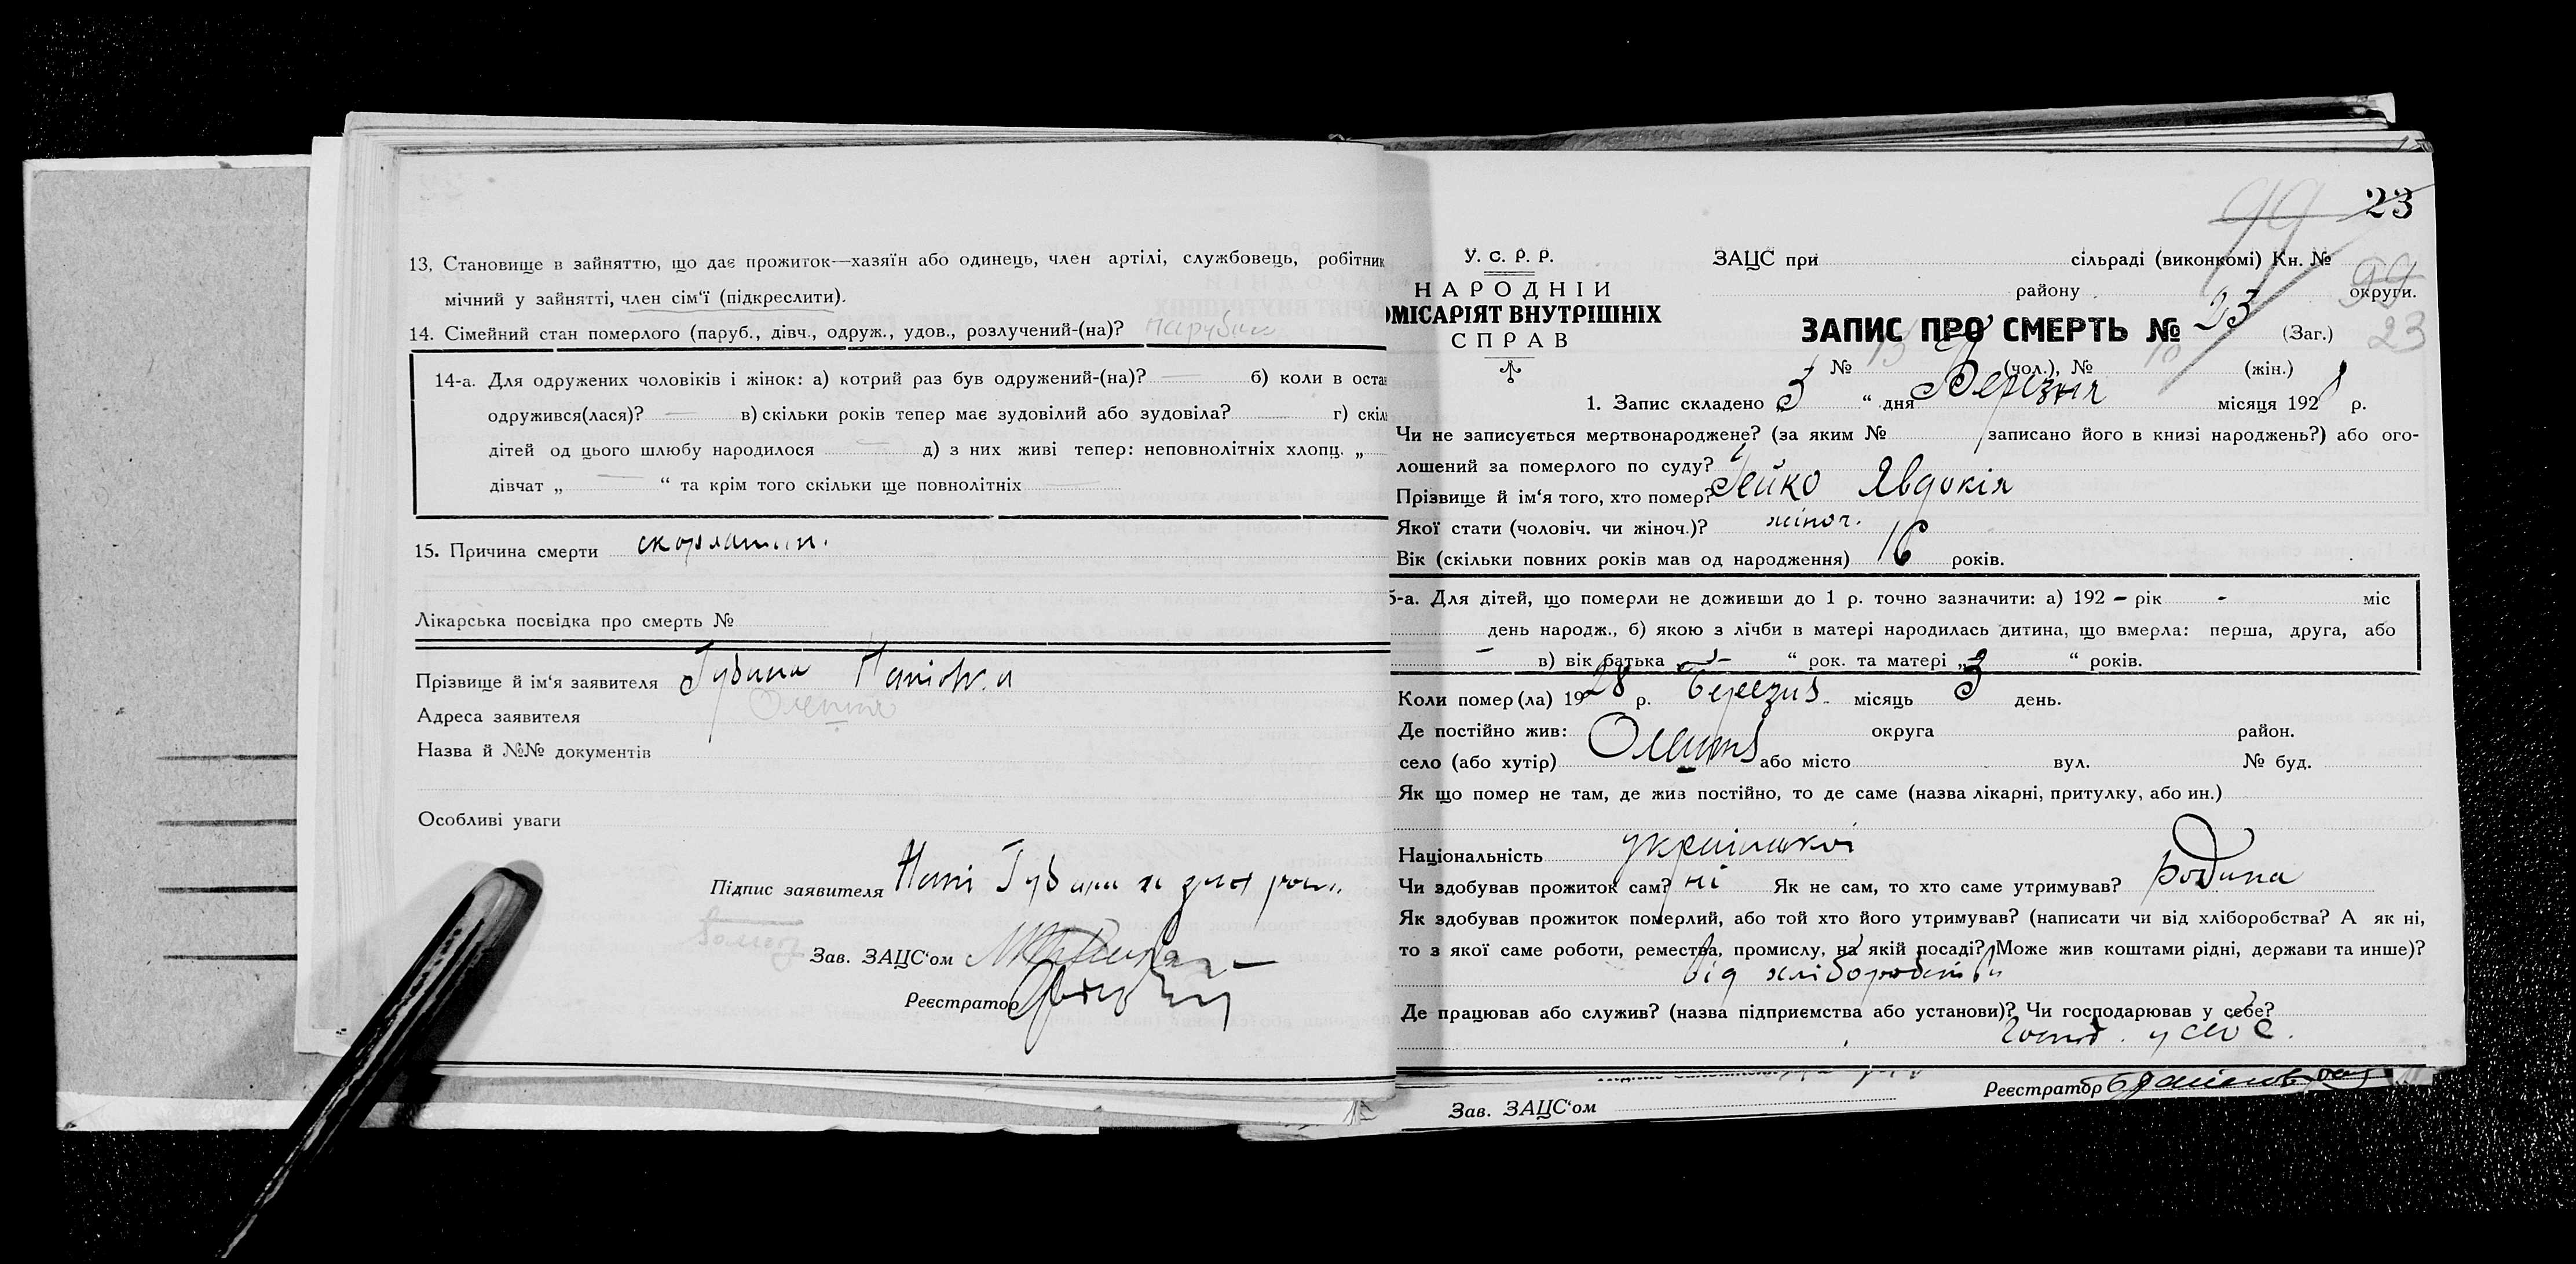 13. Становище в зайняттю, що дає прожиток—хазяїн або одинець, член артілі, службовець, робітник
мічний у зайнятті, член сім‘ї (підкреслити).
14. Сімейний стан померлого (паруб., дівч., одруж., удов., розлучений-(на)? парубок
14-а. Для одружених чоловіків і жінок: а) котрий раз був одружений-(на)? — б) коли в оста
одружився(лася)? — в) скільки років тепер має зудовілий або зудовіла? — г) скіль
дітей од цього шлюбу народилося — д) з них живі тепер: неповнолітніх хлопц. „
дівчат „ — “ та крім того скільки ще повнолітніх —
15. Причина смерти скорлатин.
Лікарська посвідка про смерть №
Прізвище й ім‘я заявителя Губина
Адреса заявителя
Назва й №№ документів
Особливі уваги
Підпис заявителя Губина
Зав. ЗАЦС‘ом
Реєстратор
23
99
У. С. Р. Р.
НАРОДНІЙ
ОМІСАРІЯТ ВНУТРІШНІХ
СПРАВ
ЗАЦС при сільраді (виконкомі) Кн. №
району округи.
99
ЗАПИС ПРО СМЕРТЬ № 23 (Заг.)
23
№ 13 (чол.), № 10 (жін.)
1. Запис складено „3 “ дня Березня місяця 1928 р.
Чи не записується мертвонароджене? (за яким № записано його в книзі народжень?) або ого-
лошений за померлого по суду?
Прізвище й ім‘я того, хто помер? Гейко Явдокія
Якої стати (чоловіч. чи жіноч.)? жіноч.
Вік (скільки повних років мав од народження) 16 років.
5-а. Для дітей, що померли не доживши до 1 р. точно зазначити: а) 192 – рік - міс
день народж., б) якою з лічби в матері народилась дитина, що вмерла: перша, друга, або
— в) вік батька „ — “ рок. та матері „ “ років.
Коли помер(ла) 1928 р. Березня місяць 3 день.
Де постійно жив: округа район.
село (або хутір) або місто вул. № буд.
Як що помер не там, де жив постійно, то де саме (назва лікарні, притулку, або ин.)
Національність
Чи здобував прожиток сам? ні Як не сам, то хто саме утримував? родина
Як здобував прожиток померлий, або той хто його утримував? (написати чи від хліборобства? А як ні,
то з якої саме роботи, ремества, промислу, на якій посаді? Може жив коштами рідні, держави та инше)?
від хліборобства
Де працював або служив? (назва підприємства або установи)? Чи господарював у себе?
Зав. ЗАЦС‘ом
Реєстратор